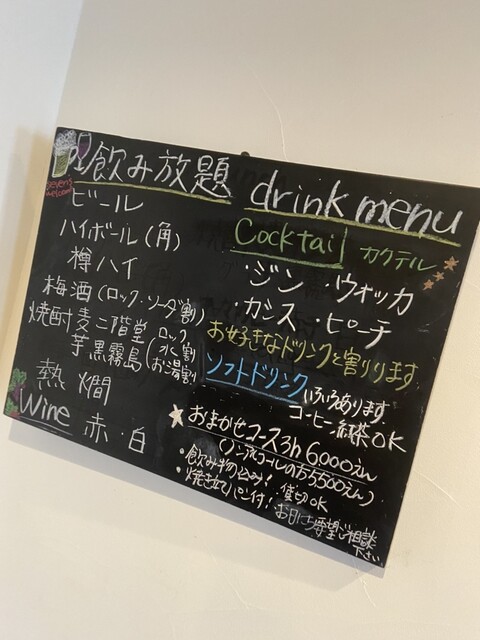 飲み放題
ビール
ハイボール(角)
樽ハイ
梅酒(ロック・ソーダ割)
焼酎 麦 二階堂
芋 黒霧島
(ロック
水割
お湯割
熱燗
Wine 赤・白
drink menu
Cocktail カクテル
・ジン ・ウォッカ
・カシス ・ピーチ
お好きなドリンクを割ります
ソフトドリンク
いろいろあります
コーヒー紅茶OK
★おまかせコース3h 6000えん
(ノンアルコールの方5500えん)
・飲み物込み! 貸切OK
・焼き立てパン付! お日にち要望ご相談
下さい